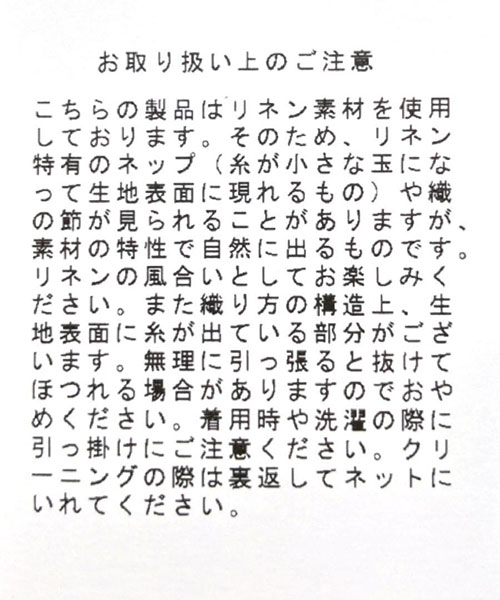 お取り扱い上のご注意
こちらの製品はリネン素材を使用
しております。そのため、リネン
特有のネップ（糸が小さな玉にな
って生地表面に現れるもの）や織
の節が見られることがありますが、
素材の特性で自然に出るものです。
リネンの風合いとしてお楽しみく
ださい。また織り方の構造上、生
地表面に糸が出ている部分がござ
います。無理に引っ張ると抜けて
ほつれる場合がありますのでおや
めください。着用時や洗濯の際に
引っ掛けにご注意ください。クリ
ーニングの際は裏返してネットに
いれてください。